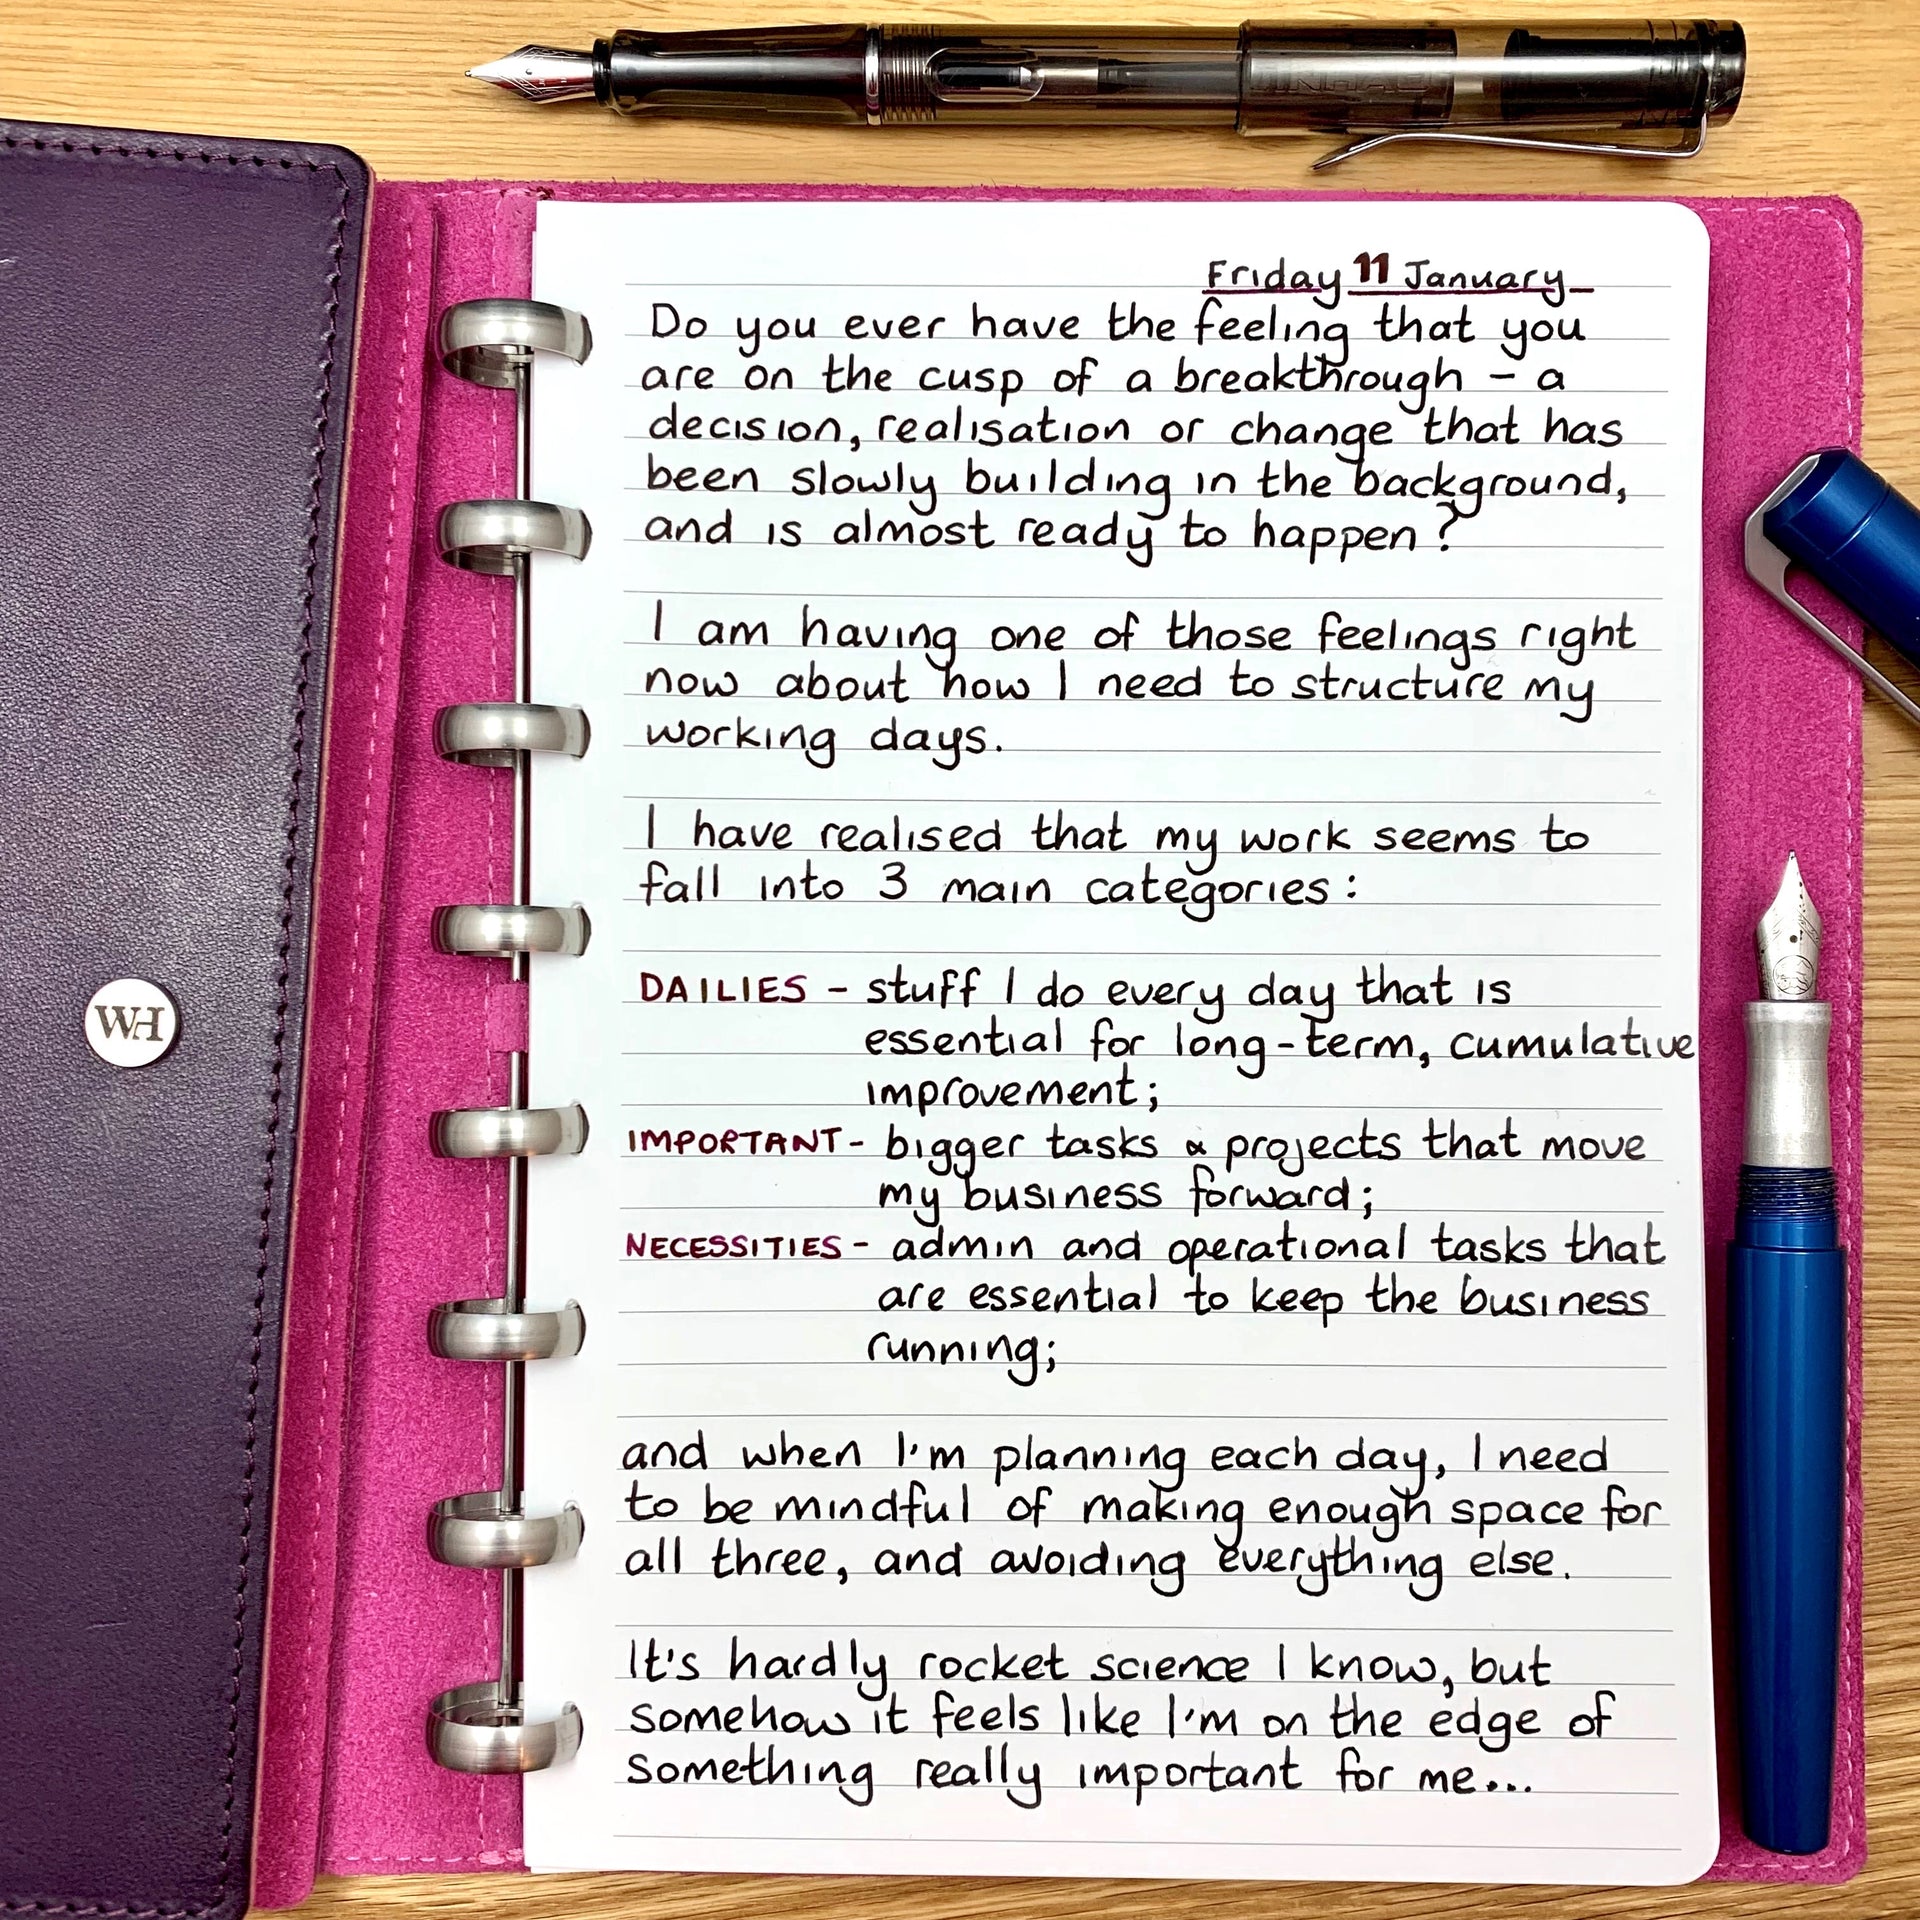 Friday 11 January
Do you ever have the feeling that you
are on the cusp of a breakthrough – a
decision, realisation or change that has
been slowly building in the background,
and is almost ready to happen?
I am having one of those feelings right
now about how I need to structure my
working days.
I have realised that my work seems to
fall into 3 main categories:
DAILIES – stuff I do every day that is
essential for long-term, cumulative
improvement;
IMPORTANT – bigger tasks & projects that move
my business forward;
NECESSITIES – admin and operational tasks that
are essential to keep the business
running;
and when I'm planning each day, I need
to be mindful of making enough space for
all three, and avoiding everything else.
It's hardly rocket science I know, but
somehow it feels like I'm on the edge of
something really important for me...
WH